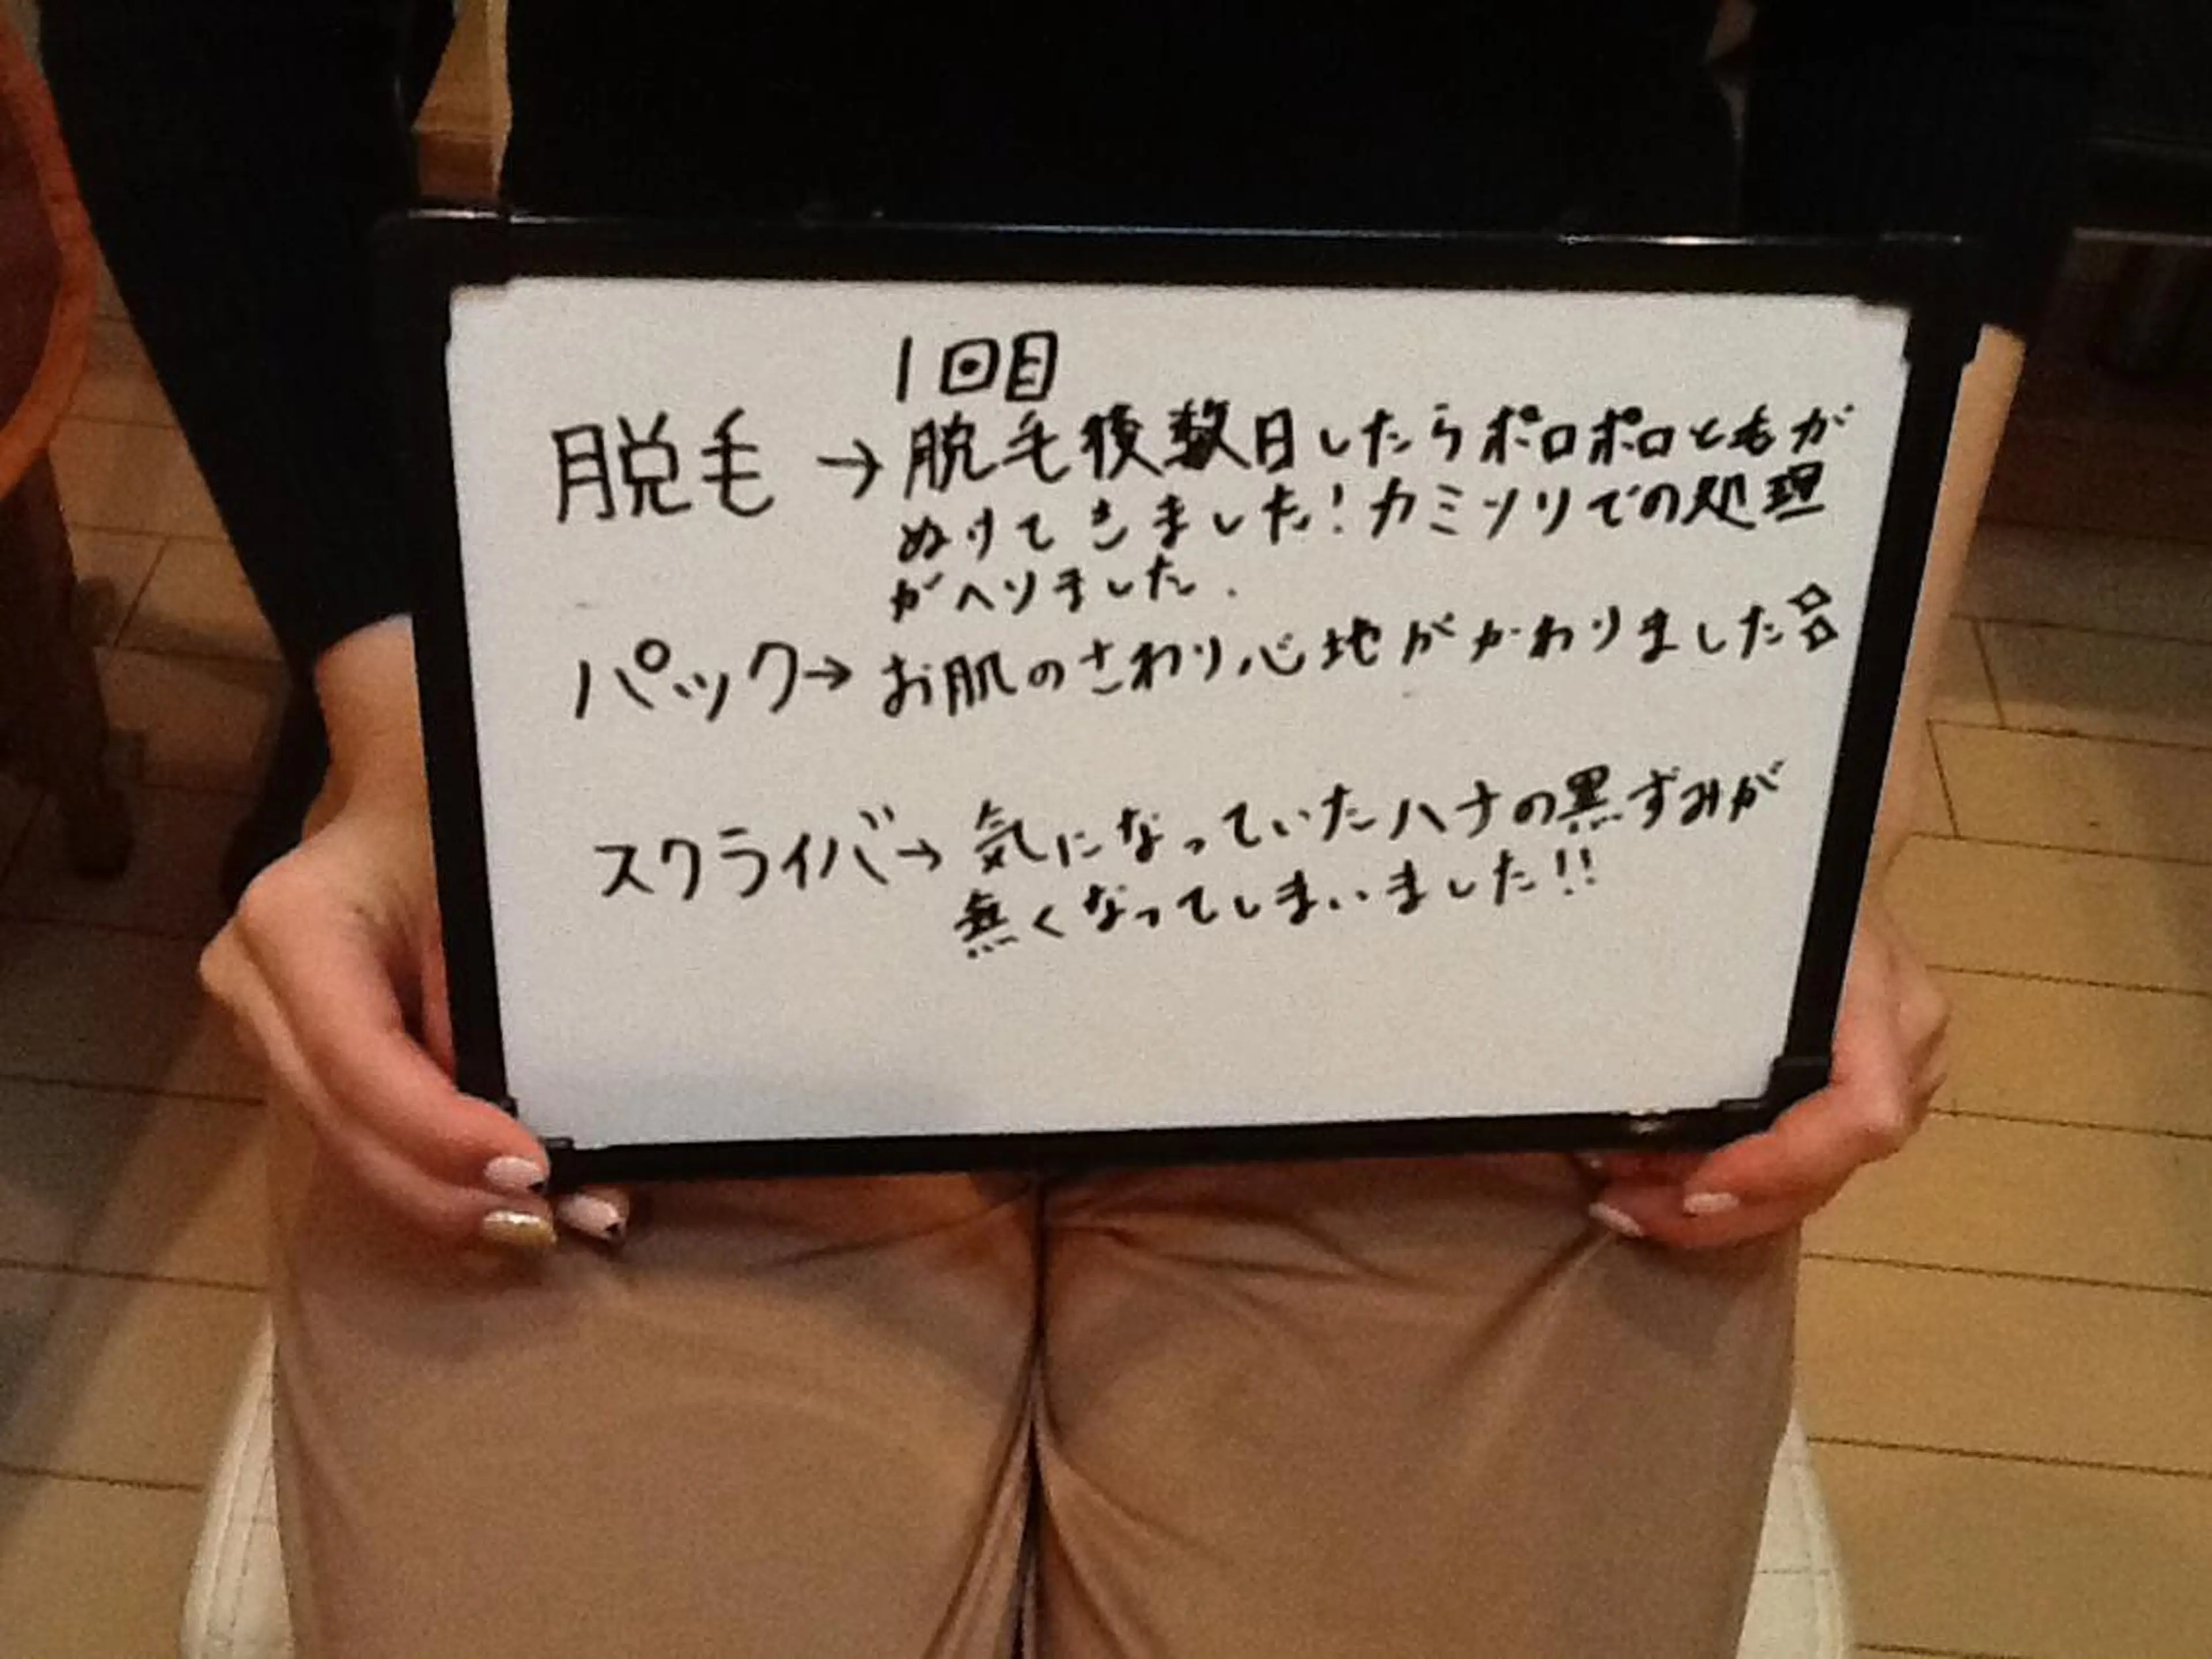 1回目
脱毛→脱毛後数日したらポロポロともが
ぬけてきました!カミソリでの処理
がヘリました.
パック→お肌のさわり心地がかわりました
スクライバ→気になっていたハナの黒ずみが
無くなってしまいました!!